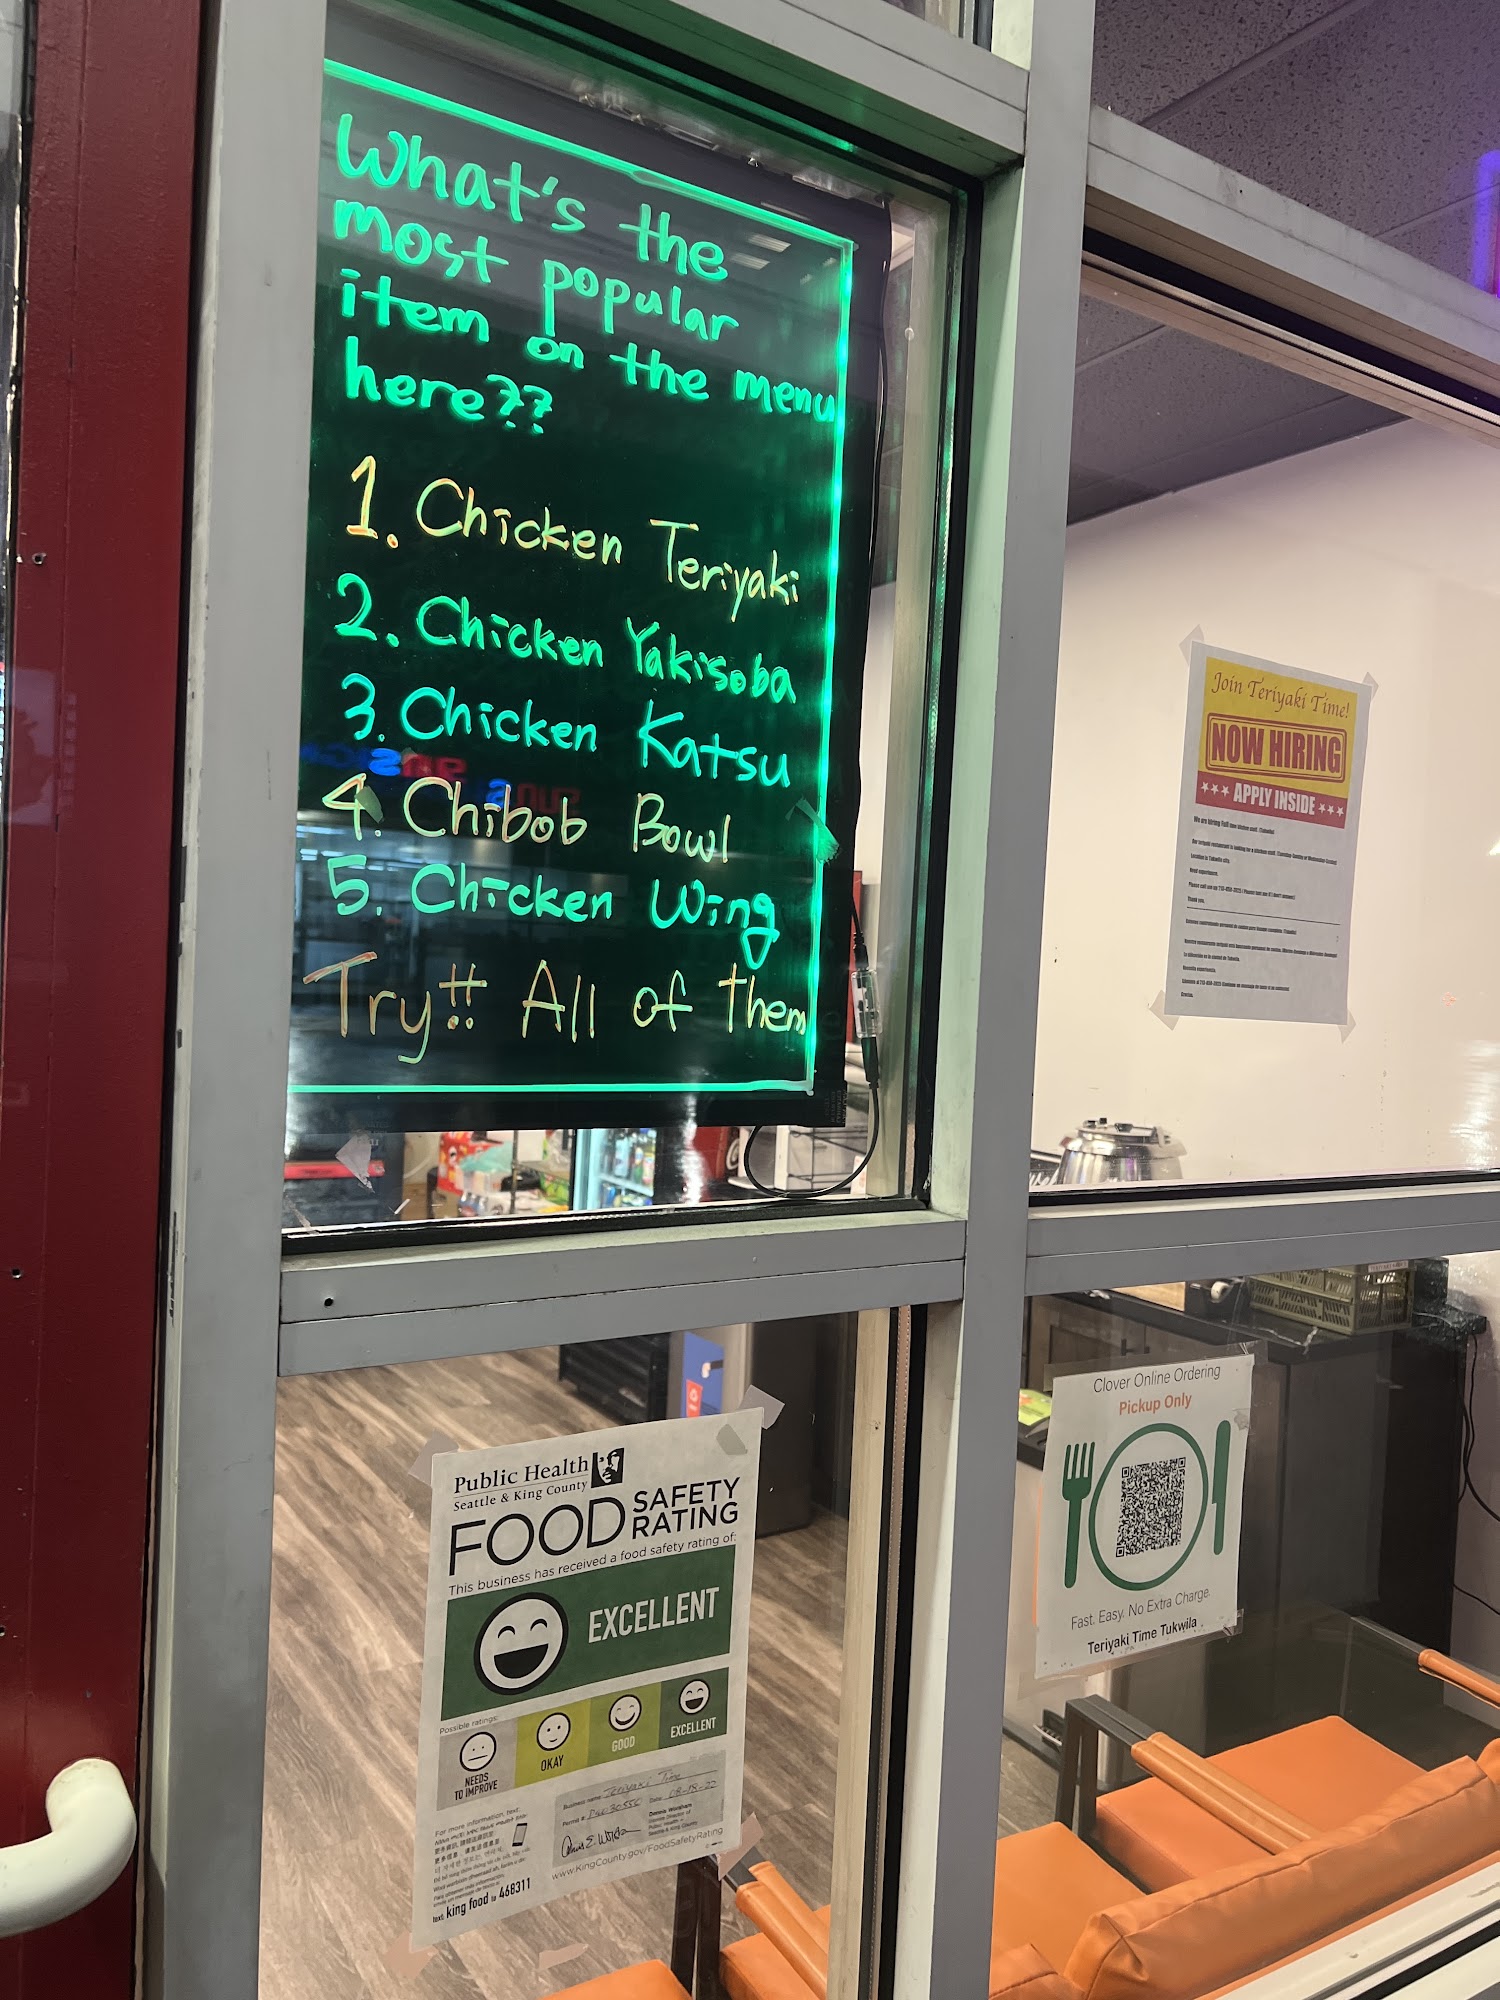 What's the
most popular
item on the menu
here??
1. Chicken Teriyaki
2. Chicken Yakisoba
3. Chicken Katsu
4. Chibob Bowl
5. Chicken Wing
Try!! All of them
Join Teriyaki Time!
NOW HIRING
APPLY INSIDE
We are hiring
Location is Tukwila city.
Need experience.
Thank you.
Necesita experiencia.
Gracias.
Public Health
Seattle & King County
FOOD SAFETY RATING
This business has received a food safety rating of:
EXCELLENT
Possible ratings:
NEEDS TO IMPROVE
OKAY
GOOD
EXCELLENT
Business name: Teriyaki Time
Permit #:
Date: 08-18-22
For more information, text:
text: king food to 468311
www.KingCounty.gov/FoodSafetyRating
Clover Online Ordering
Pickup Only
Fast. Easy. No Extra Charge.
Teriyaki Time Tukwila